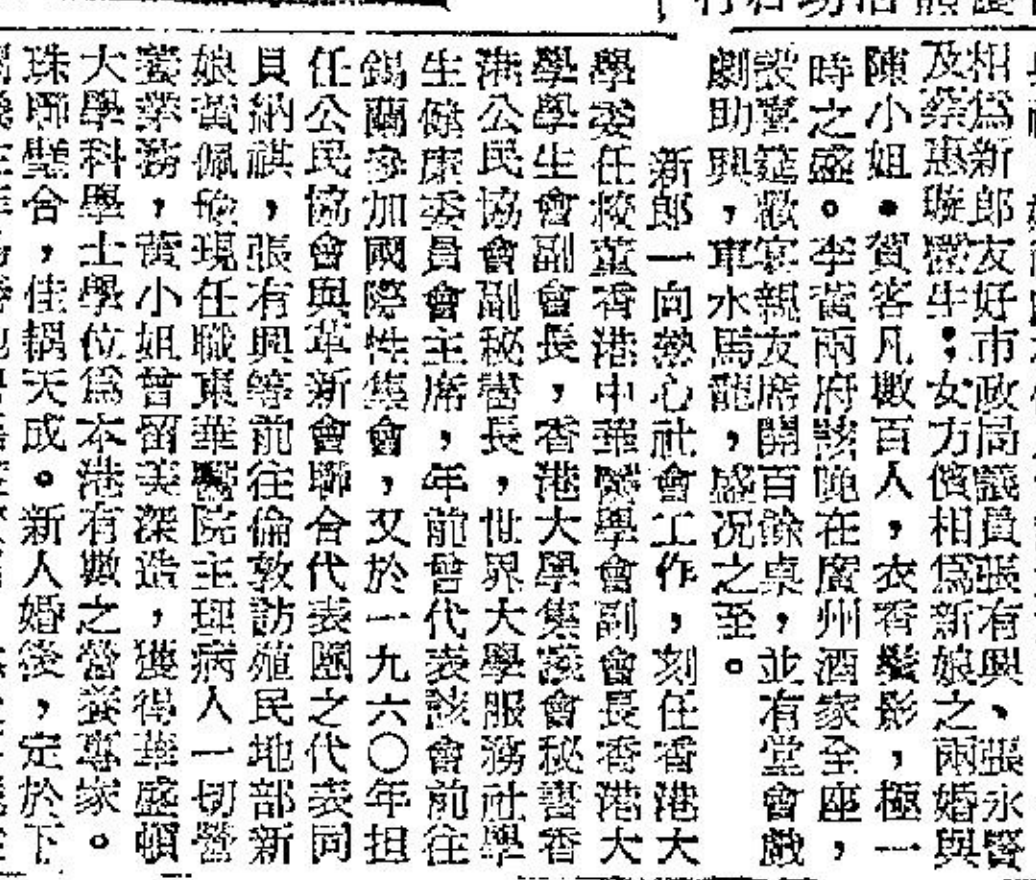 相為新郎友好市政局議員張有興、張永賢
及蔡惠璇醫生；女方儐相為新娘之兩婚與
陳小姐。賀客凡數百人，衣香鬓影，極一
時之盛。李黃兩府該晚在廣州酒家全座，
設喜筵歡宴親友席開百餘桌，並有堂會戲
劇助興，車水馬龍，盛况之至。
新郎一向熱心社會工作，刻任香港大
學委任校董香港中華醫學會副會長香港大
學學生會副會長，香港大學集議會秘書香
港公民協會副秘書長，世界大學服務社學
生健康委員會主席，年前曾代表該會前往
錫蘭參加國際性集會，又於一九六〇年担
任公民協會與革新會聯合代表團之代表同
貝納祺，張有興等前往倫敦訪殖民地部新
娘黃佩 現任職東華醫院主理病人一切營
養業務，黃小姐曾留美深造，獲得華盛頓
大學科學士學位為本港有數之營養專家。
珠聯璧合，佳耦天成。新人婚後，定於下